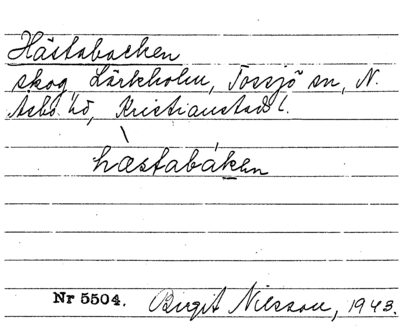 Hästabacken
skog, Lärkholm, Tossjö sn, N.
Åsbo hd, Kristianstads l.
hæstabáken
Nr 5504. Birgit Nilsson, 1943.